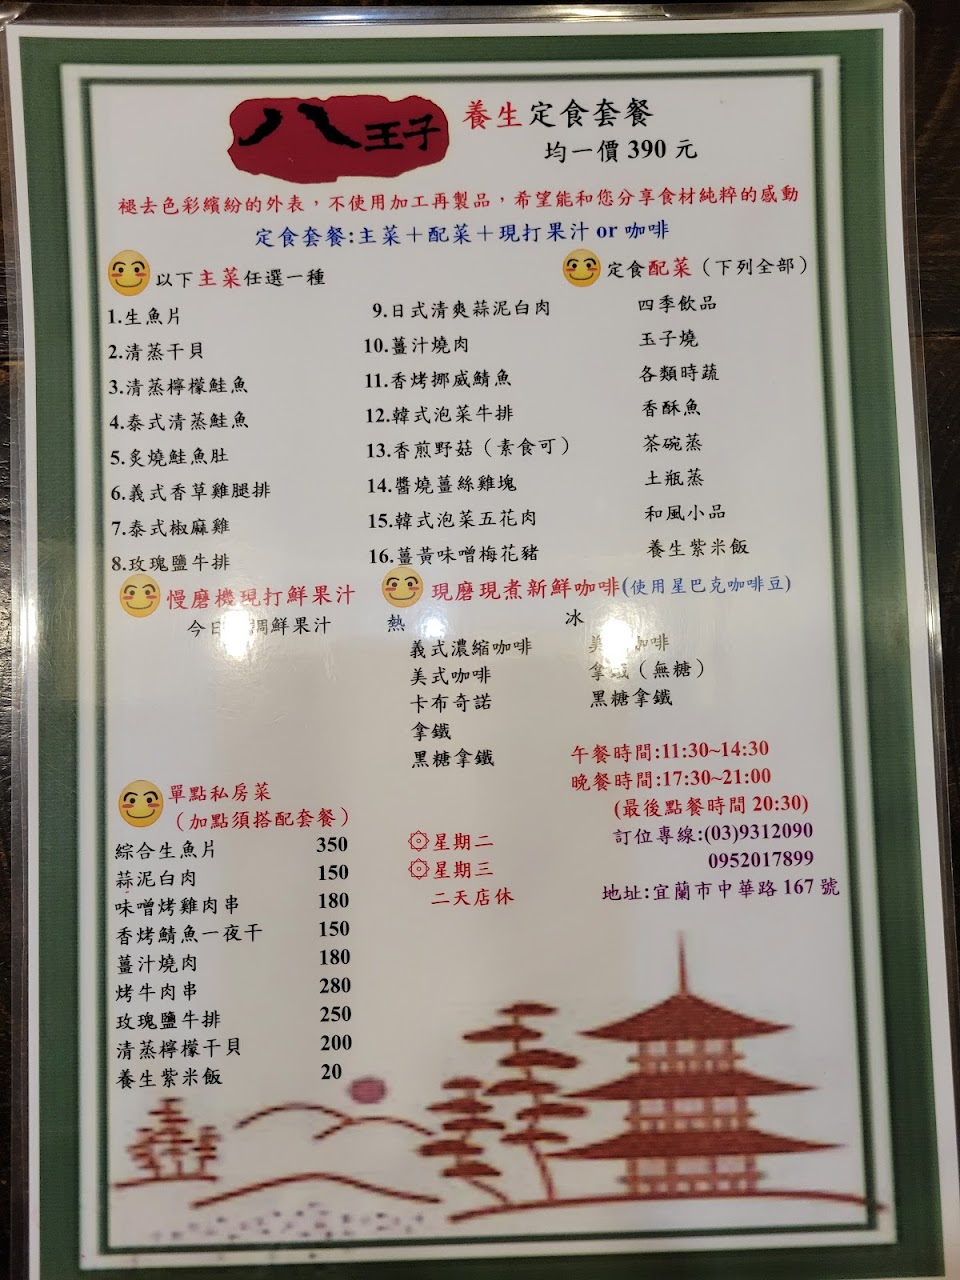 八王子 養生定食套餐
均一價 390 元
褪去色彩繽紛的外表，不使用加工再製品，希望能和您分享食材純粹的感動
定食套餐:主菜＋配菜＋現打果汁 or 咖啡
以下主菜任選一種
1.生魚片
2.清蒸干貝
3.清蒸檸檬鮭魚
4.泰式清蒸鮭魚
5.炙燒鮭魚肚
6.義式香草雞腿排
7.泰式椒麻雞
8.玫瑰鹽牛排
9.日式清爽蒜泥白肉
10.薑汁燒肉
11.香烤挪威鯖魚
12.韓式泡菜牛排
13.香煎野菇（素食可）
14.醬燒薑絲雞塊
15.韓式泡菜五花肉
16.薑黃味噌梅花豬
定食配菜（下列全部）
四季飲品
玉子燒
各類時蔬
香酥魚
茶碗蒸
土瓶蒸
和風小品
養生紫米飯
慢磨機現打鮮果汁
今日 調鮮果汁
現磨現煮新鮮咖啡(使用星巴克咖啡豆)
熱
義式濃縮咖啡
美式咖啡
卡布奇諾
拿鐵
黑糖拿鐵
冰
美 咖啡
拿鐵（無糖）
黑糖拿鐵
午餐時間:11:30~14:30
晚餐時間:17:30~21:00
(最後點餐時間 20:30)
訂位專線:(03)9312090
0952017899
地址:宜蘭市中華路 167 號
星期二
星期三
二天店休
單點私房菜
（加點須搭配套餐）
綜合生魚片 350
蒜泥白肉 150
味噌烤雞肉串 180
香烤鯖魚一夜干 150
薑汁燒肉 180
烤牛肉串 280
玫瑰鹽牛排 250
清蒸檸檬干貝 200
養生紫米飯 20